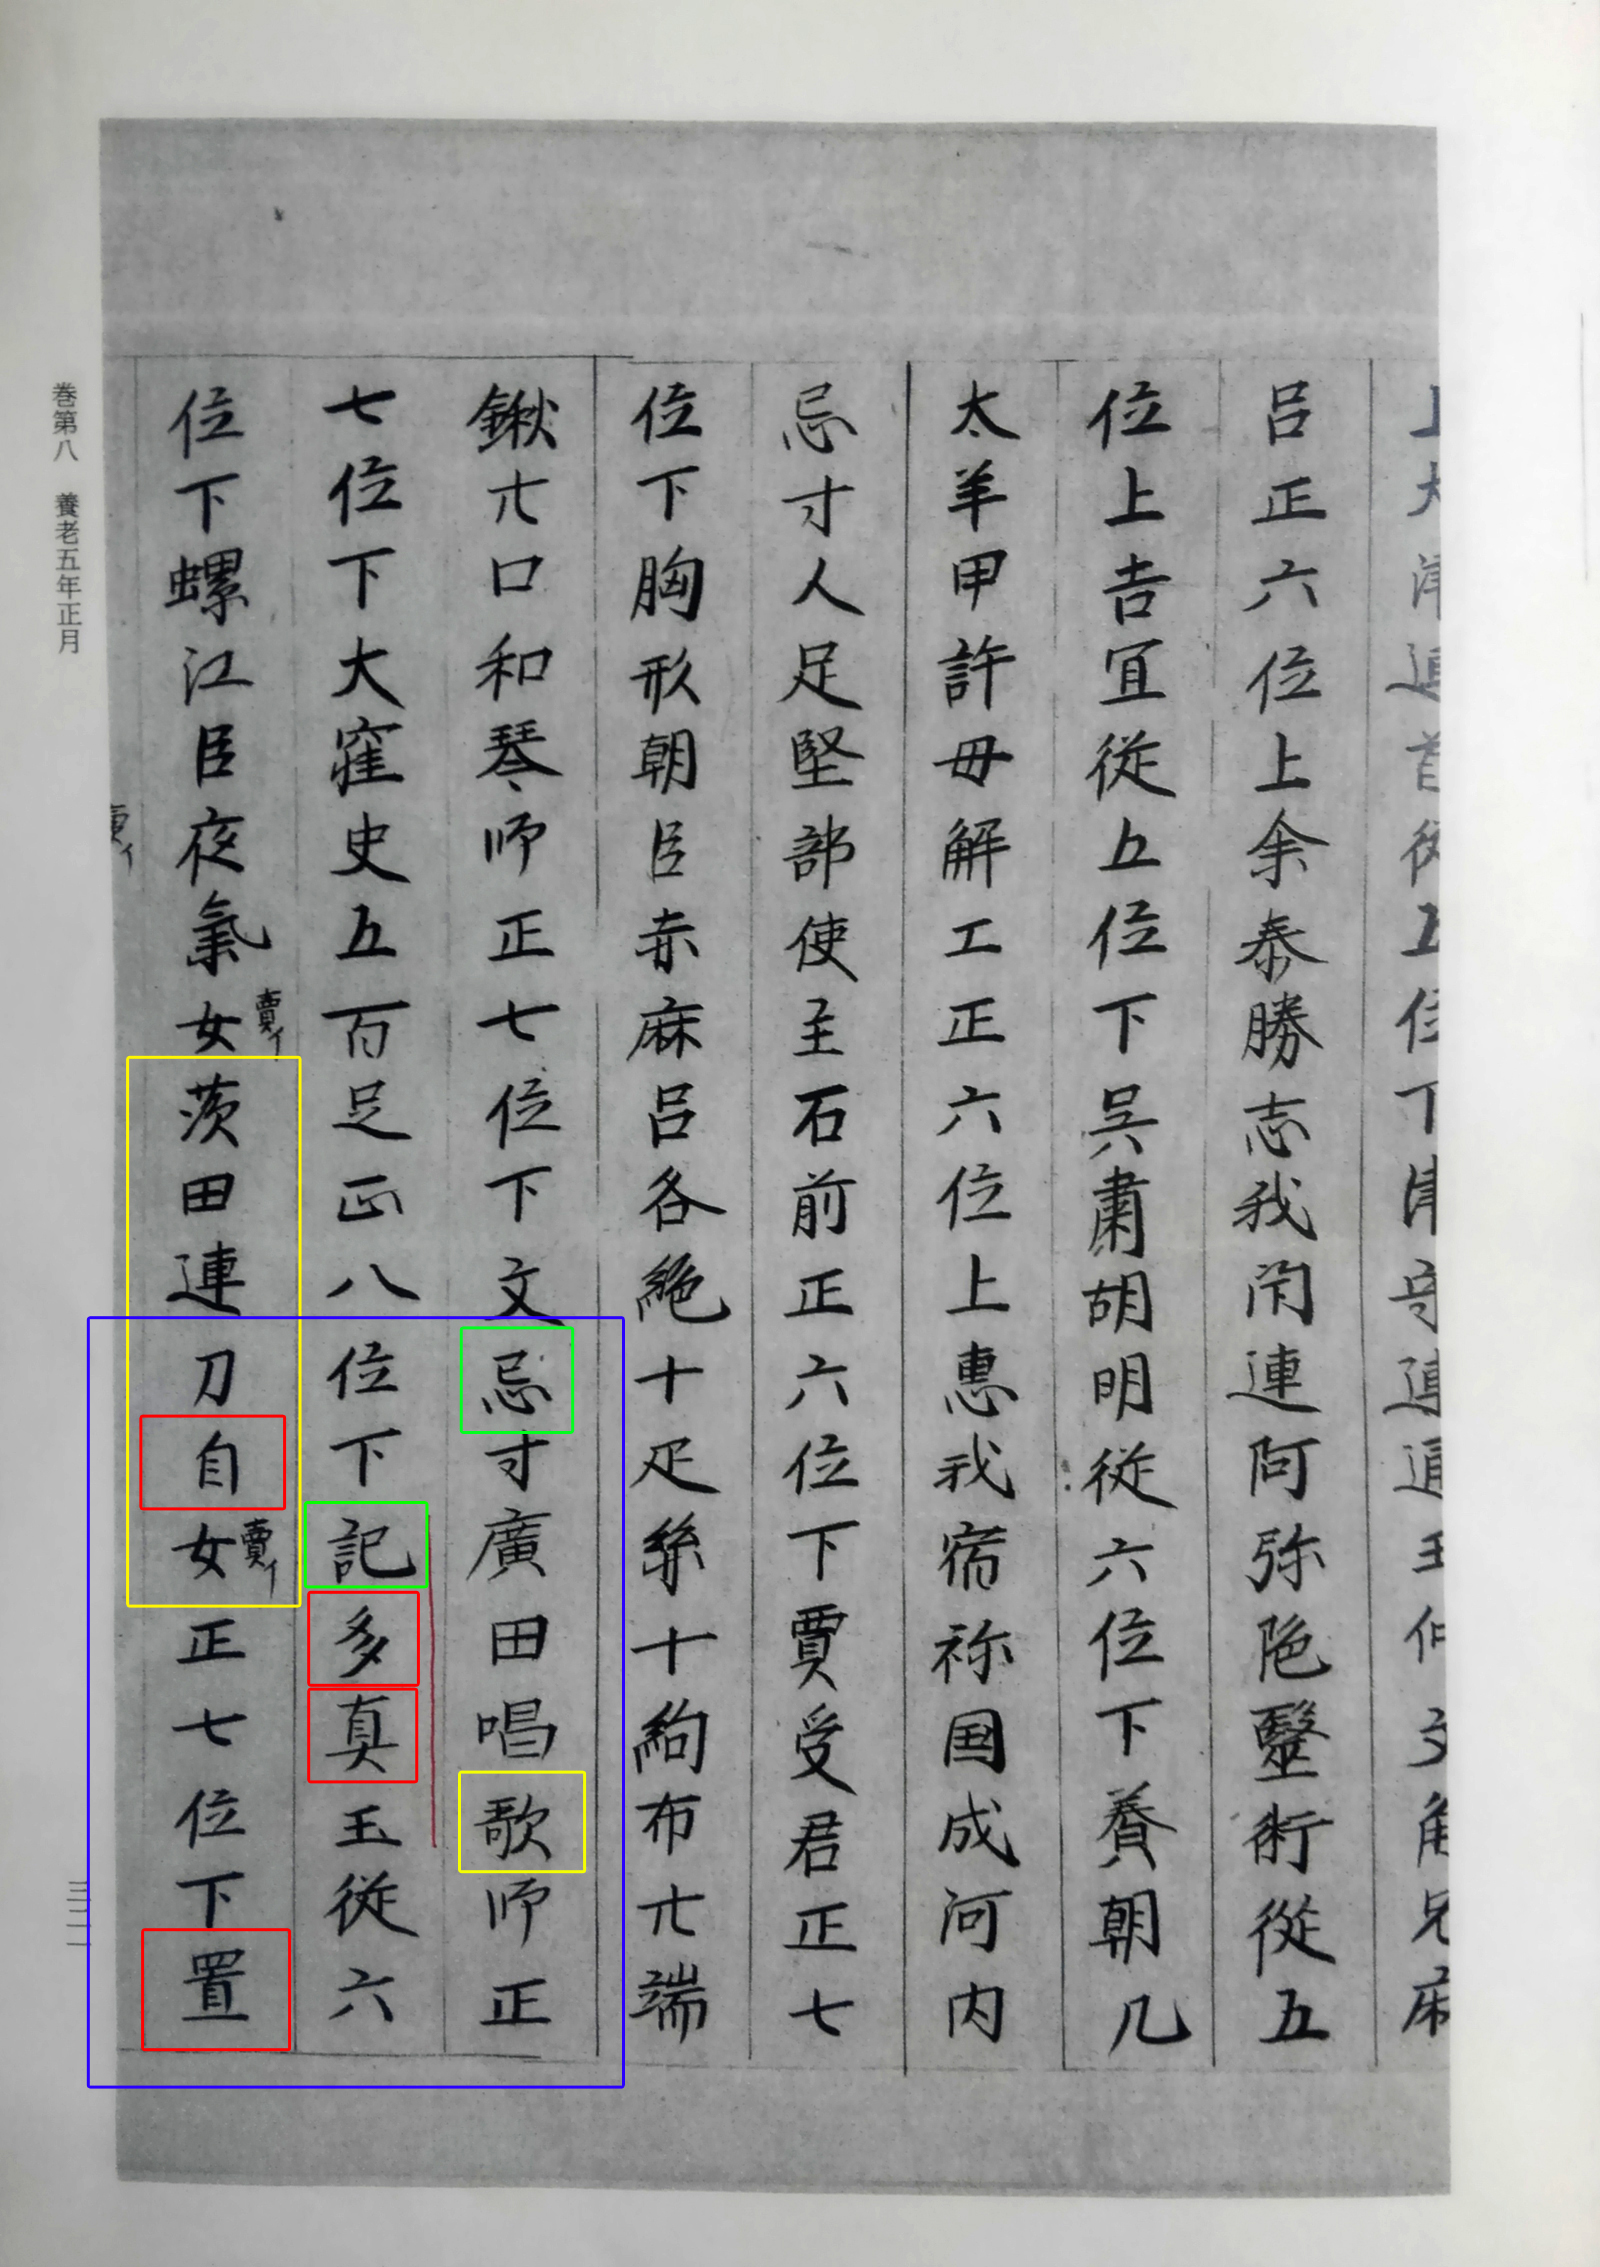 呂正六位上余泰勝志我閇連阿弥陁毉術従五
位上吉冝従五位下呉肅胡明従六位下養朝几
太羊甲許毋解工正六位上惠我宿祢国成河内
忌寸人足堅部使主石前正六位下賈受君正七
位下胸形朝臣赤麻呂各絁十疋絲十絇布廾端
鍬廾口和琴師正七位下文忌寸廣田唱歌師正
七位下大窪史五百足正八位下記多真玉従六
位下螺江臣夜氣女茨田連刀自女正七位下置
賣イ
賣イ
巻第八 養老五年正月